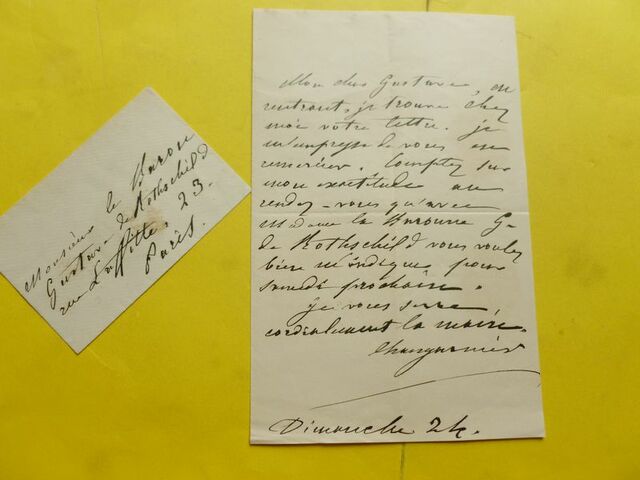 Monsieur le Baron
Gustave de Rothschild
rue Laffitte 23.
Paris.
Mon cher Gustave, en
rentrant, je trouve chez
moi votre lettre. je
m'empresse de vous en
remercier. Comptez sur
mon exactitude au
rendez-vous qu'avec
Madame la Baronne G.
de Rothschild vous voulez
bien m'indiquer pour
samedi prochain.
Je vous serre
cordialement la main.
Changarnier
Dimanche 24.